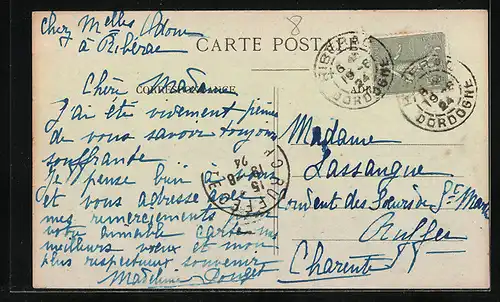 Chez Melles Adon
à Ribérac
8
CARTE POSTALE
CORRESPONDANCE
Chère Mada
J'ai été vivement peinée
de vous savoir toujours
souffrante.
Je pense bien à vous
et vous adresse
mes remerciements
votre aimable carte
meilleurs vœux et mon
plus respectueux souvenir
Madeleine
RIBÉRAC
DORDOGNE
RIBÉRAC
DORDOGNE
RUFFEC
15
24
Madame
Lassangue
Couvent des Sœurs de Ste Marthe
Ruffec
Charente